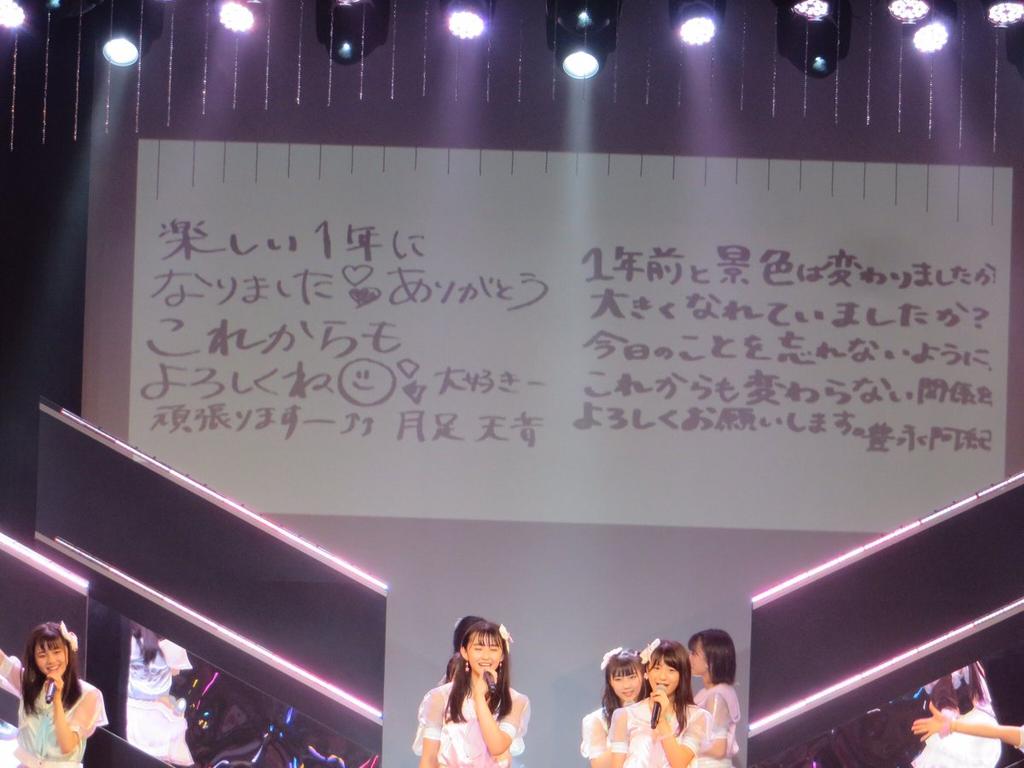 楽しい1年に
なりました♡ありがとう
これからも
よろしくね☺♡大好きー
頑張りますー♪♪ 月足天音
1年前と景色は変わりましたか?
大きくなれていましたか?
今日のことを忘れないように、
これからも変わらない関係を
よろしくお願いします。豊永阿紀